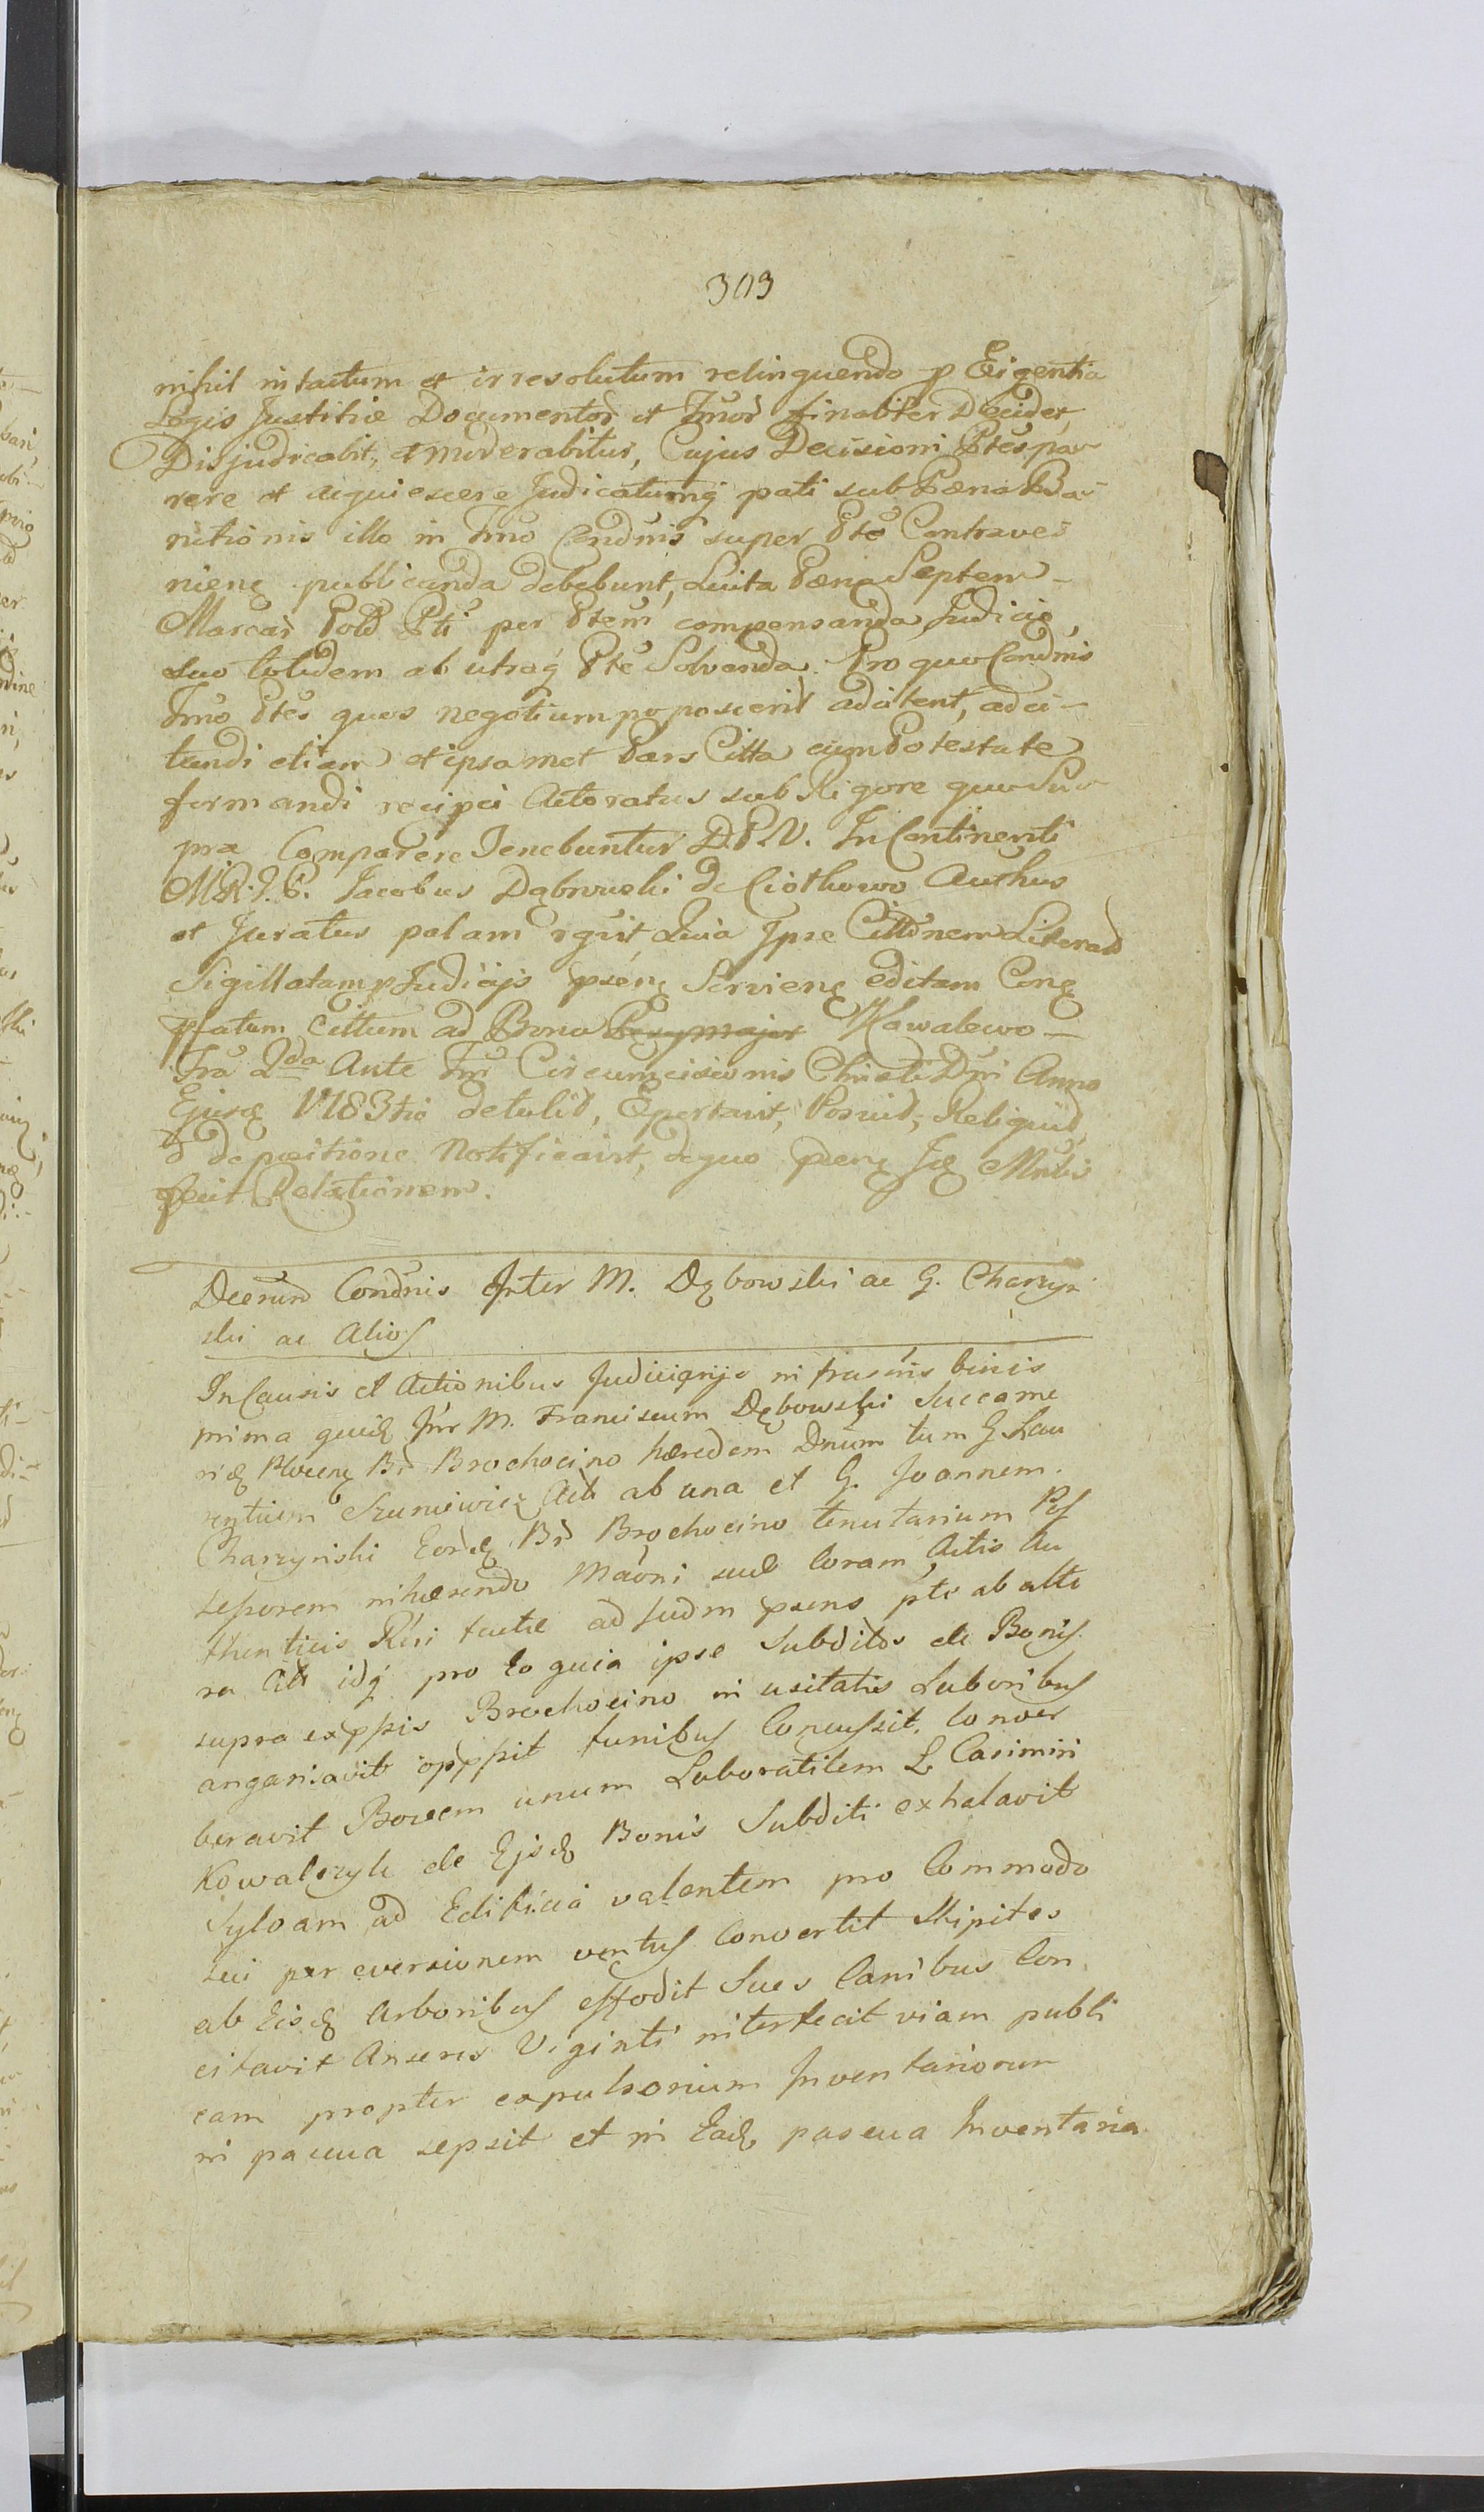 303
nihil intactum et irresolutum relinquendo p Exigentia
Legis Justitiæ Documentor et Jnuor finaliter Decidet,
Disjudicabit, et moderabitur, Cujus Decisioni Ptes pa-
rere et acquiescere Judicatumq pati sub Pœna Ba-
nitionis illo in Tmo Condnis super Pte Contrave-
nienę publicanda debebunt, Luita Pœna Septem
Marcar Pold Pti per Ptem compensanda, Judicio
suo totidem ab utraq Pte Solvenda. Pro quo Condnis
Tmo Ptes quos negotium poposcerit adcitent, adci-
tandi etiam et ipsamet Pars Citta cum Potestate
formandi recipei Actoratus sub Rigore quo Su-
pra Comparere Tenebuntur D.P.N. In Continenti
M.R.J.P. Jacobus Dąbrowski de Ciołkowo Authus
et Juratus palam rguit Quia Ipse Cittõnem Literad
Sigillatam p Judicijs psenę Servienę editam Conę
pfatum Cittum ad Bona Kawalewo
Fra 2da Ante Fm Circumcisionis Christi Dni Anno
Ejusd 1783tio detulit, Exportavit, Posuit, Reliquid,
d depositione Notificavit, de quo pdenę Jcę Mnlis
fecit Relationem.
Decrum Condnis Inter M. Dębowski ac G. Charzyń
ski ac Alios
In Causis et Actionibus Judiciarijs infrascrīs binis
prima quidę Inr M. Franciscum Dębowski Succame
ridę Plocenę Br Brochocino hæredem Dnum tum G. Lau
rentium Szuniewicz Act ab una et G. Joannem.
Charzyński Eordę Br Brochocino tenutarium Pos
sessorem inhærendo Maoni suæ Coram Actis Au
thenticis Rsi factæ ad Judm psens pte ab alte
ra Citt idq pro eo quia ipse Subditos de Bonis
supra exppis Brochocino in usitatis Laboribus
angariavit opppit funibus Concussit. Conver
beravit Bovem unum Laboratilem L. Casimiri
Kowalczyk de Ejsdę Bonis Subditi exhalavit
Sylvam ad Edificia valentem pro Commodo
sui per eversionem ventus Convertit Stipites
ab Eisdę Arboribus effodit Sues Canibus Con
citavit Anseres Viginti interfecit viam publi
cam propter expulsorium Inventariorum
in pascua sepsit et in Eadę pascua Inventaria